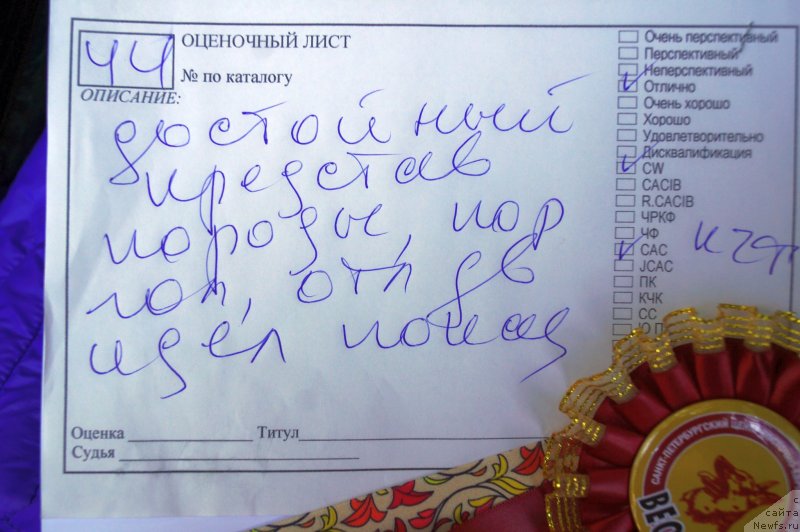 44
ОЦЕНОЧНЫЙ ЛИСТ
№ по каталогу
ОПИСАНИЕ:
достойный
представ
породы, пор
гол, отл дв
идёл показ
Оценка
Титул
Судья
Очень перспективный
Перспективный
Неперспективный
Отлично
Очень хорошо
Хорошо
Удовлетворительно
Дисквалификация
CW
CACIB
R.CACIB
ЧРКФ
ЧФ
САС КЧП
JCAC
ПК
КЧК
СС
Ю.П
САНКТ-ПЕТЕРБУРГСКИЙ
ВЕО
с
сайта
Newfs.ru